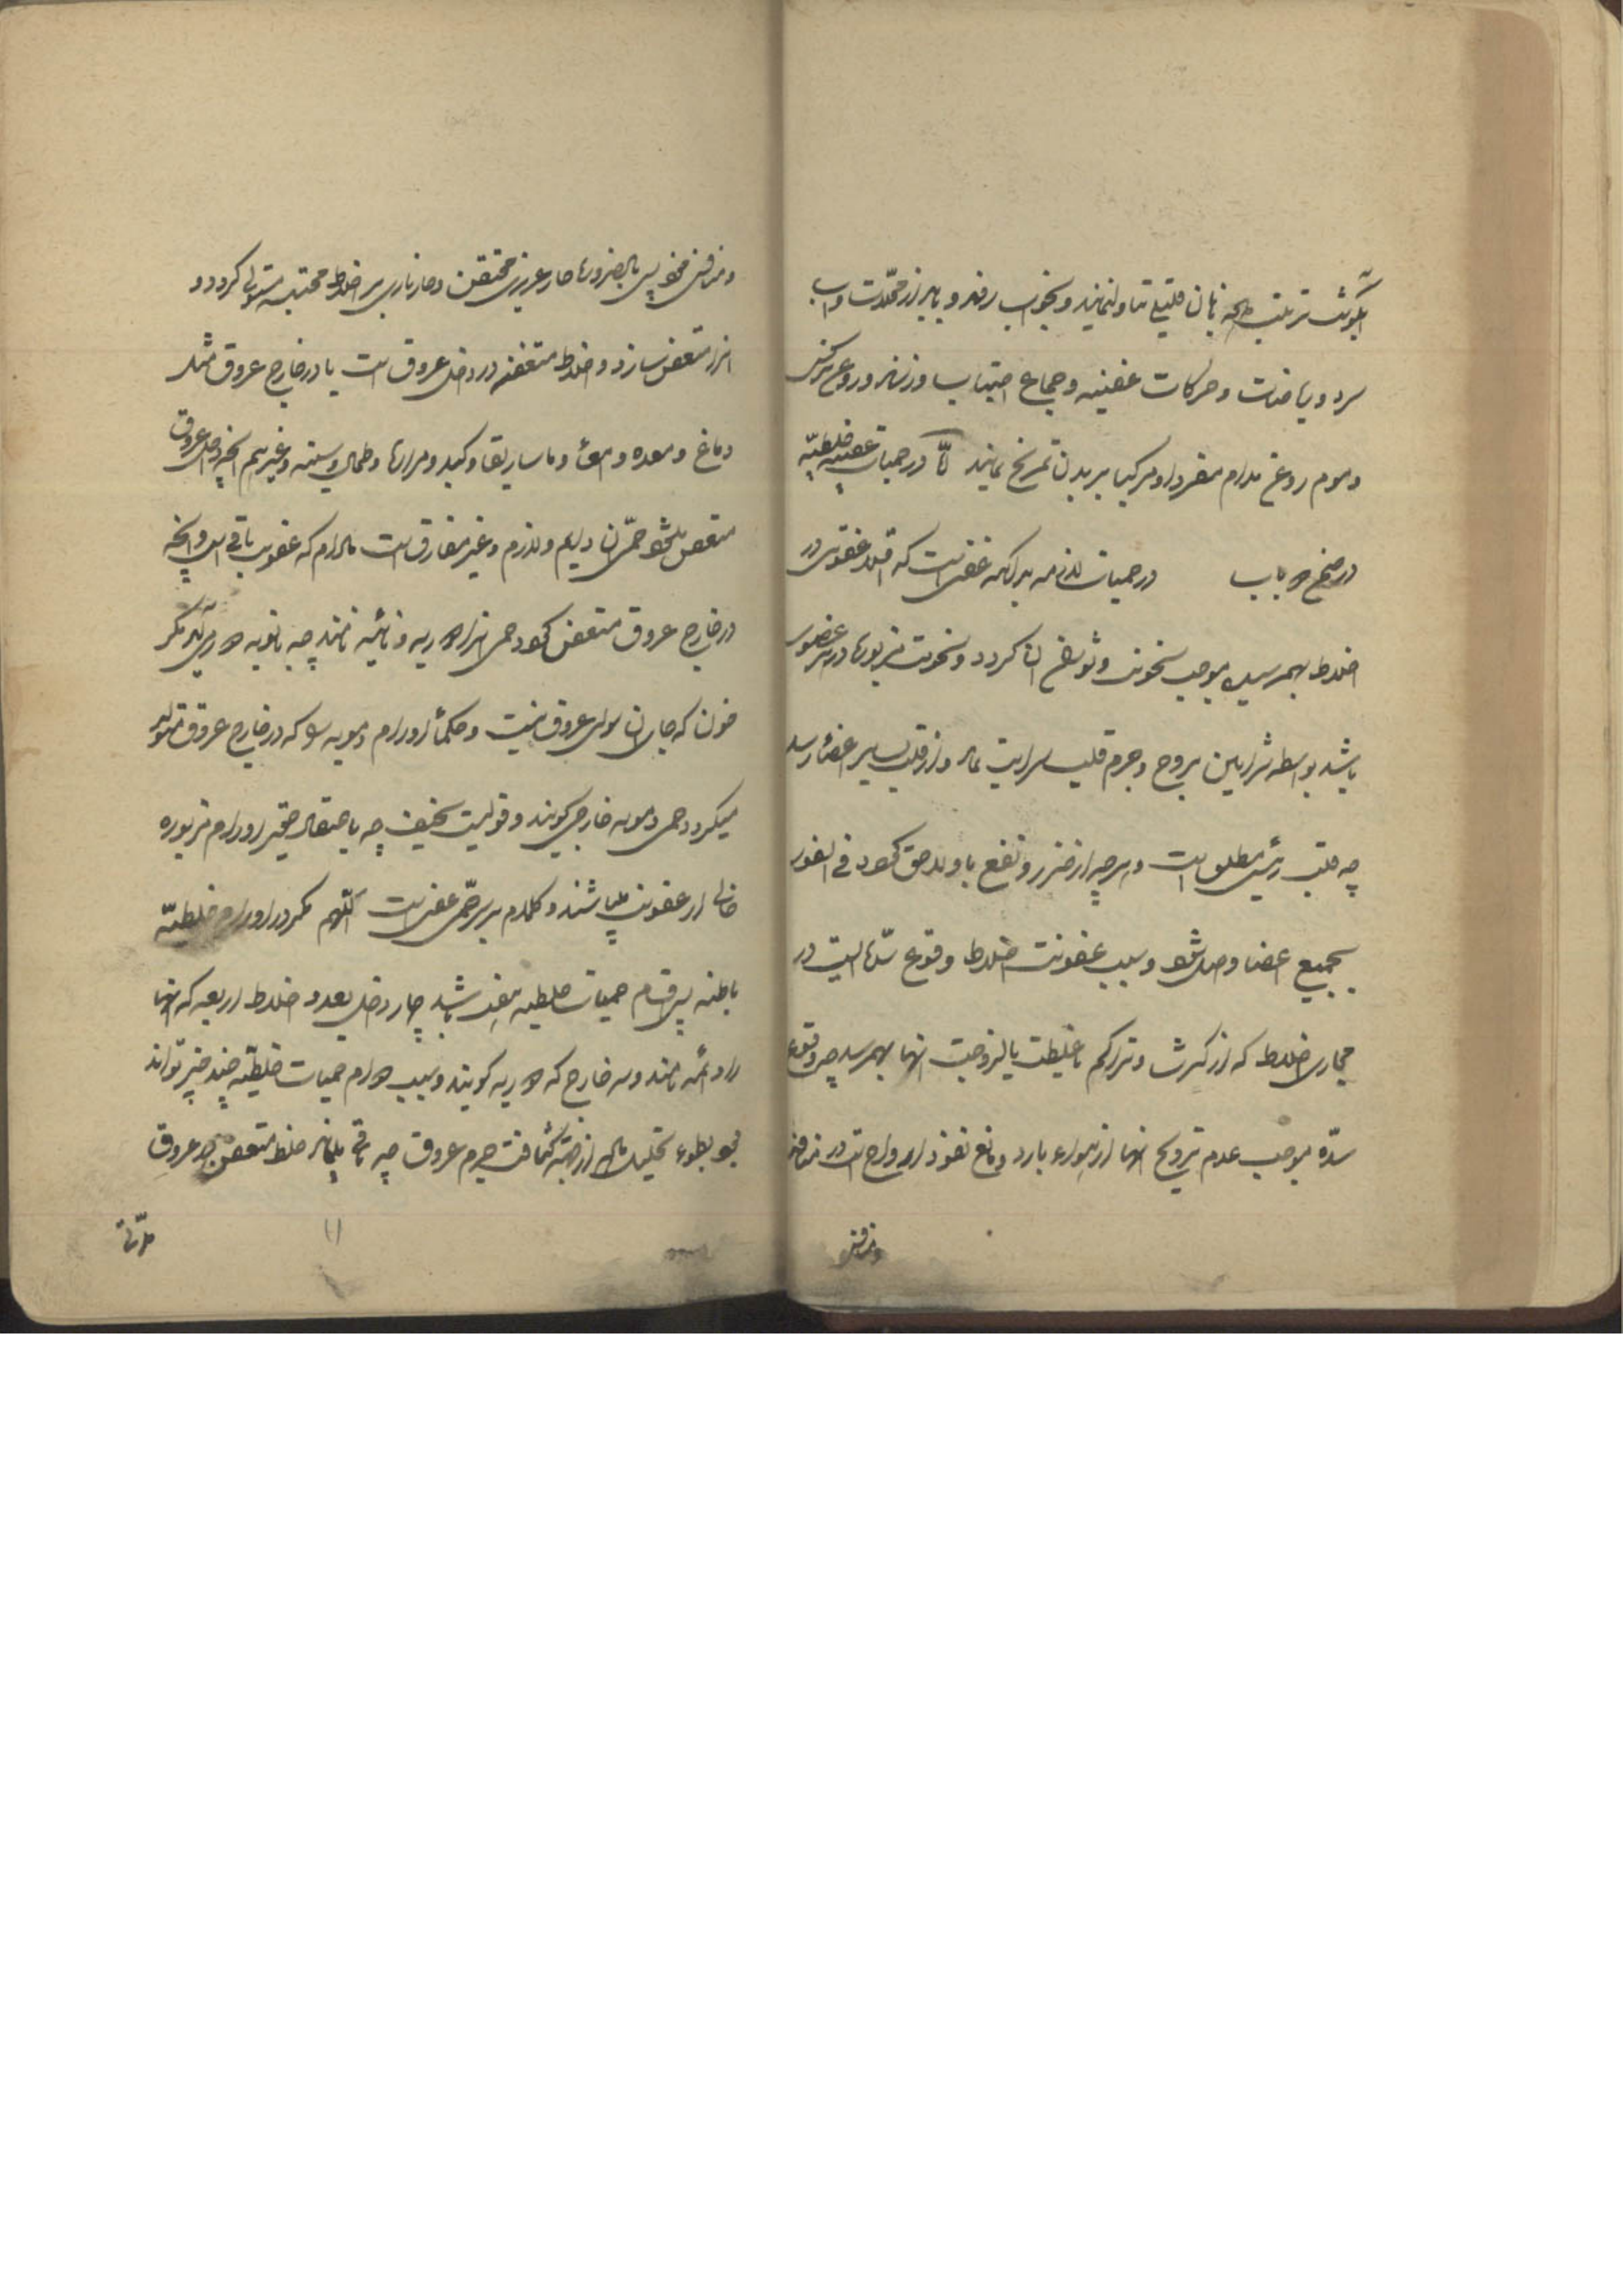 آبگوشت ترتیب یافته با نان قلیلی تناول نمایند و بخواب رفته و باید از محللات و آب
سرد و ریاضات و حرکات عنیفه و جماع اجتناب ورزند و روغن
و موم روغن مدام مفردا و مرکبا بر بدن تمریخ نمایند امّا در حمیات عفنیه خلطیّه
در حمیات لازمه بدانکه عفنی است که اولا عفونتی در
اخلاط بهم رسیده موجب سخونت و ان گردد و سخونت مزبوره در هر عضوی
باشد بواسطه شرایین بروح و جرم قلب سرایت نماید و از قلب بسایر اعضا رسد
چه قلب رئیس مطلق است و هر چه از ضرر و نفع باو لاحق گردد فی الفور
بجمیع اعضا واصل شود و سبب عفونت اخلاط وقوع سدّهائیست در
مجاری اخلاط که از کثرت و تراکم یا غلظت یا لزوجت انها بهم رسد چه وقوع
سدّه موجب عدم ترویح انها از هواء بارد و مانع نفوذ ارواح است در منافذ
و منافس
و منافس پس بالضروره حار غریزی مختنق و حار ناری بر اخلاط محتبسه مستولی گردد و
انرا متعفن سازد و اخلاط متعفنه در داخل عروق است یا در خارج عروق مثل
دماغ و معده و امعاء و ماساریقا و کبد و مراره و طحال و سینه و غیرهم انچه داخل عروق
متعفن شود حمّی ان دایم و لازم و غیر مفارق است مادام که عفونت باقی است و انچه
در خارج عروق متعفن گردد حمی انرا دایره و نائبه نامند چه بنوبه دور میکند مگر
خون که جای ان سوای عروق نیست و حکما اورام دمویه را که در خارج عروق متولد
میگردد حمی دمویه خارجی گویند و قولیست سخیف چه باعتقاد حقیر اورام مزبوره
خالی از عفونت میباشند و کلام بر سر حمّی عفنی است اللّهم مگر در اورام خلطیّه
باطنه پس اقسام حمیات خلطیه هفت باشد چهار داخلی بعدد اخلاط اربعه که انها
را دائمه نامند و سه خارج که دایره گویند و سبب دوام حمیات خلطیّه چند چیز تواند
بود بطوء تحلیل ماده از جهة کثافت جرم عروق چه باقی میماند خلط متعفن در عروق